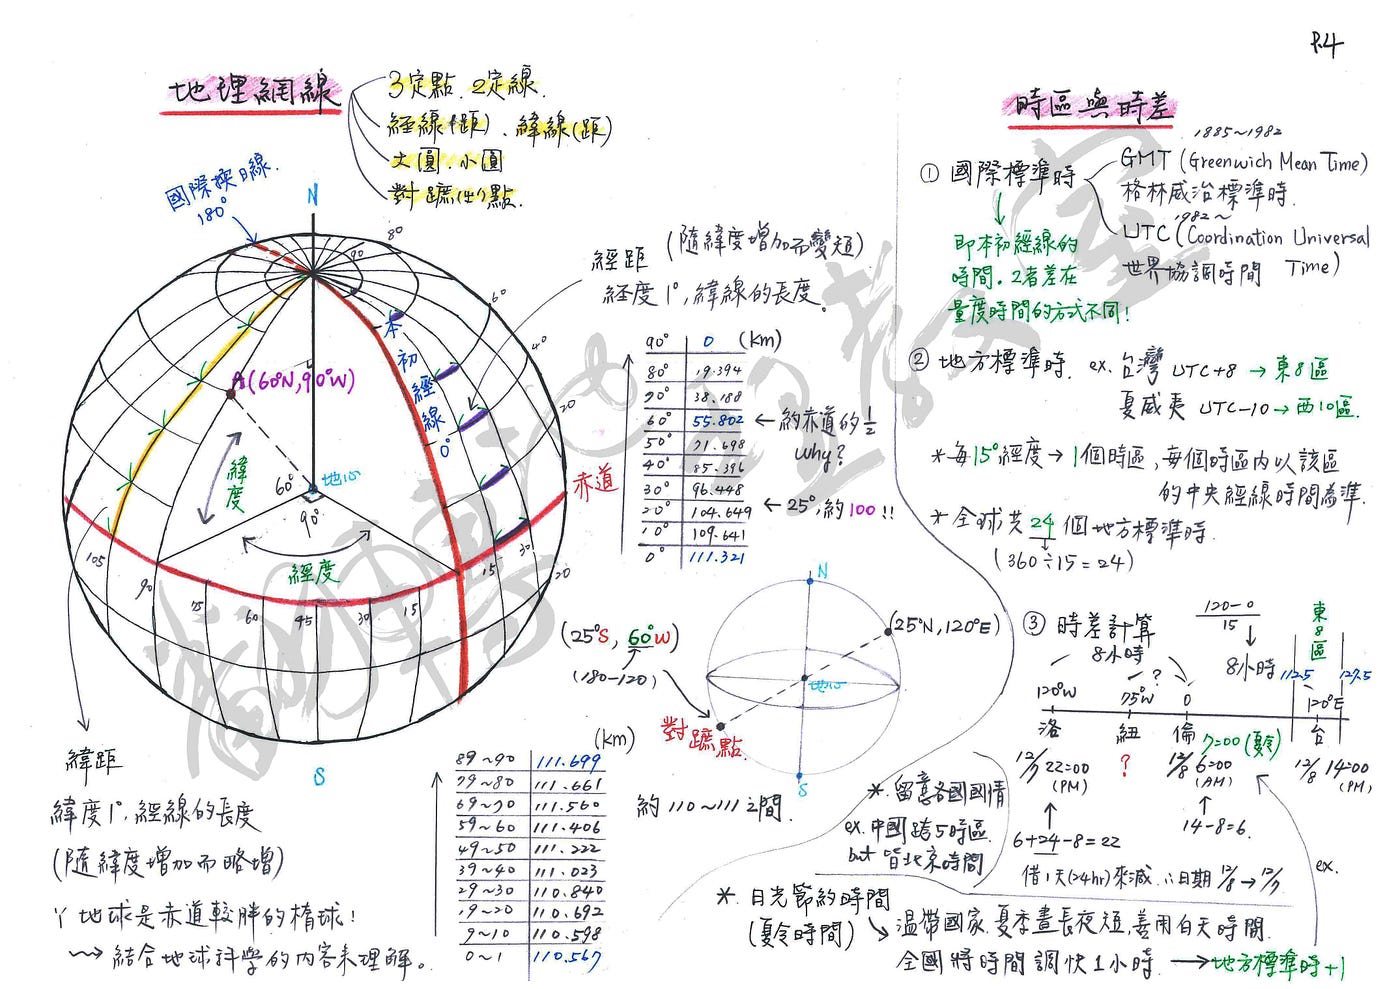 P.4
地理網線
3定點、2定線
經線(距)、緯線(距)
大圓、小圓
對蹠(生)點
國際換日線
180°
N
80
90
60
40
20
A(60°N, 90°W)
本初經線 0°
緯度
60°
地心
90°
經度
赤道
105
90
75
60
45
30
15
15
30
20
S
經距 (隨緯度增加而變短)
經度1°,緯線的長度。
90° 0 (km)
80° 19.394
70° 38.188
60° 55.802 ← 約赤道的1/2
why?
50° 71.698
40° 85.396
30° 96.448
20° 104.649 ← 25°,約100!!
10° 109.641
0° 111.321
緯距
緯度1°,經線的長度
(隨緯度增加而略增)
丫地球是赤道較胖的橢球!
結合地球科學的內容來理解。
(km)
89~90 111.699
79~80 111.661
69~70 111.560
59~60 111.406
49~50 111.222
39~40 111.023
29~30 110.840
19~20 110.692
9~10 110.598
0~1 110.567
約110~111之間
N
(25°N, 120°E)
(25°S, 60°W)
(180-120)
地心
對蹠點
S
時區與時差
① 國際標準時
1885~1982
GMT (Greenwich Mean Time)
格林威治標準時
1982~
UTC (Coordination Universal
世界協調時間 Time)
即本初經線的
時間。2者差在
量度時間的方式不同!
② 地方標準時 ex. 台灣 UTC+8 → 東8區
夏威夷 UTC-10 → 西10區
*每15°經度→1個時區,每個時區內以該區
的中央經線時間為準.
*全球共24個地方標準時.
(360÷15=24)
③ 時差計算
8小時
120-0
15
8小時
東8區
112.5 127.5
120°W ? 75°W 0 120°E
洛 紐 倫 台
7:00 (夏令)
12/7 22:00 (PM)
?
12/8 6:00 (AM)
12/8 14:00 (PM)
6+24-8=22
14-8=6.
借1天(24hr)來減 ∴日期 12/8→12/7
ex.
*.留意各國國情
ex.中國跨5時區
but 皆北京時間
*. 日光節約時間
(夏令時間)
溫帶國家.夏季晝長夜短,善用白天時間.
全國將時間調快1小時 → 地方標準時+1